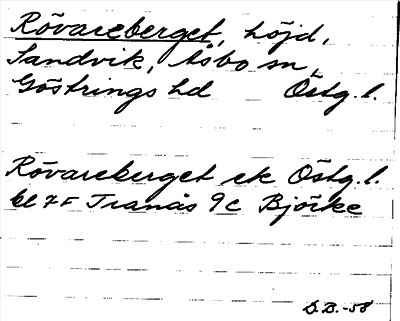 Rövareberget, höjd,
Sandvik, Åsbo sn,
Göstrings hd Östg.l.
Rövareberget ek Östg.l.
bl 7F Tranås 9c Björke
D.B.-58